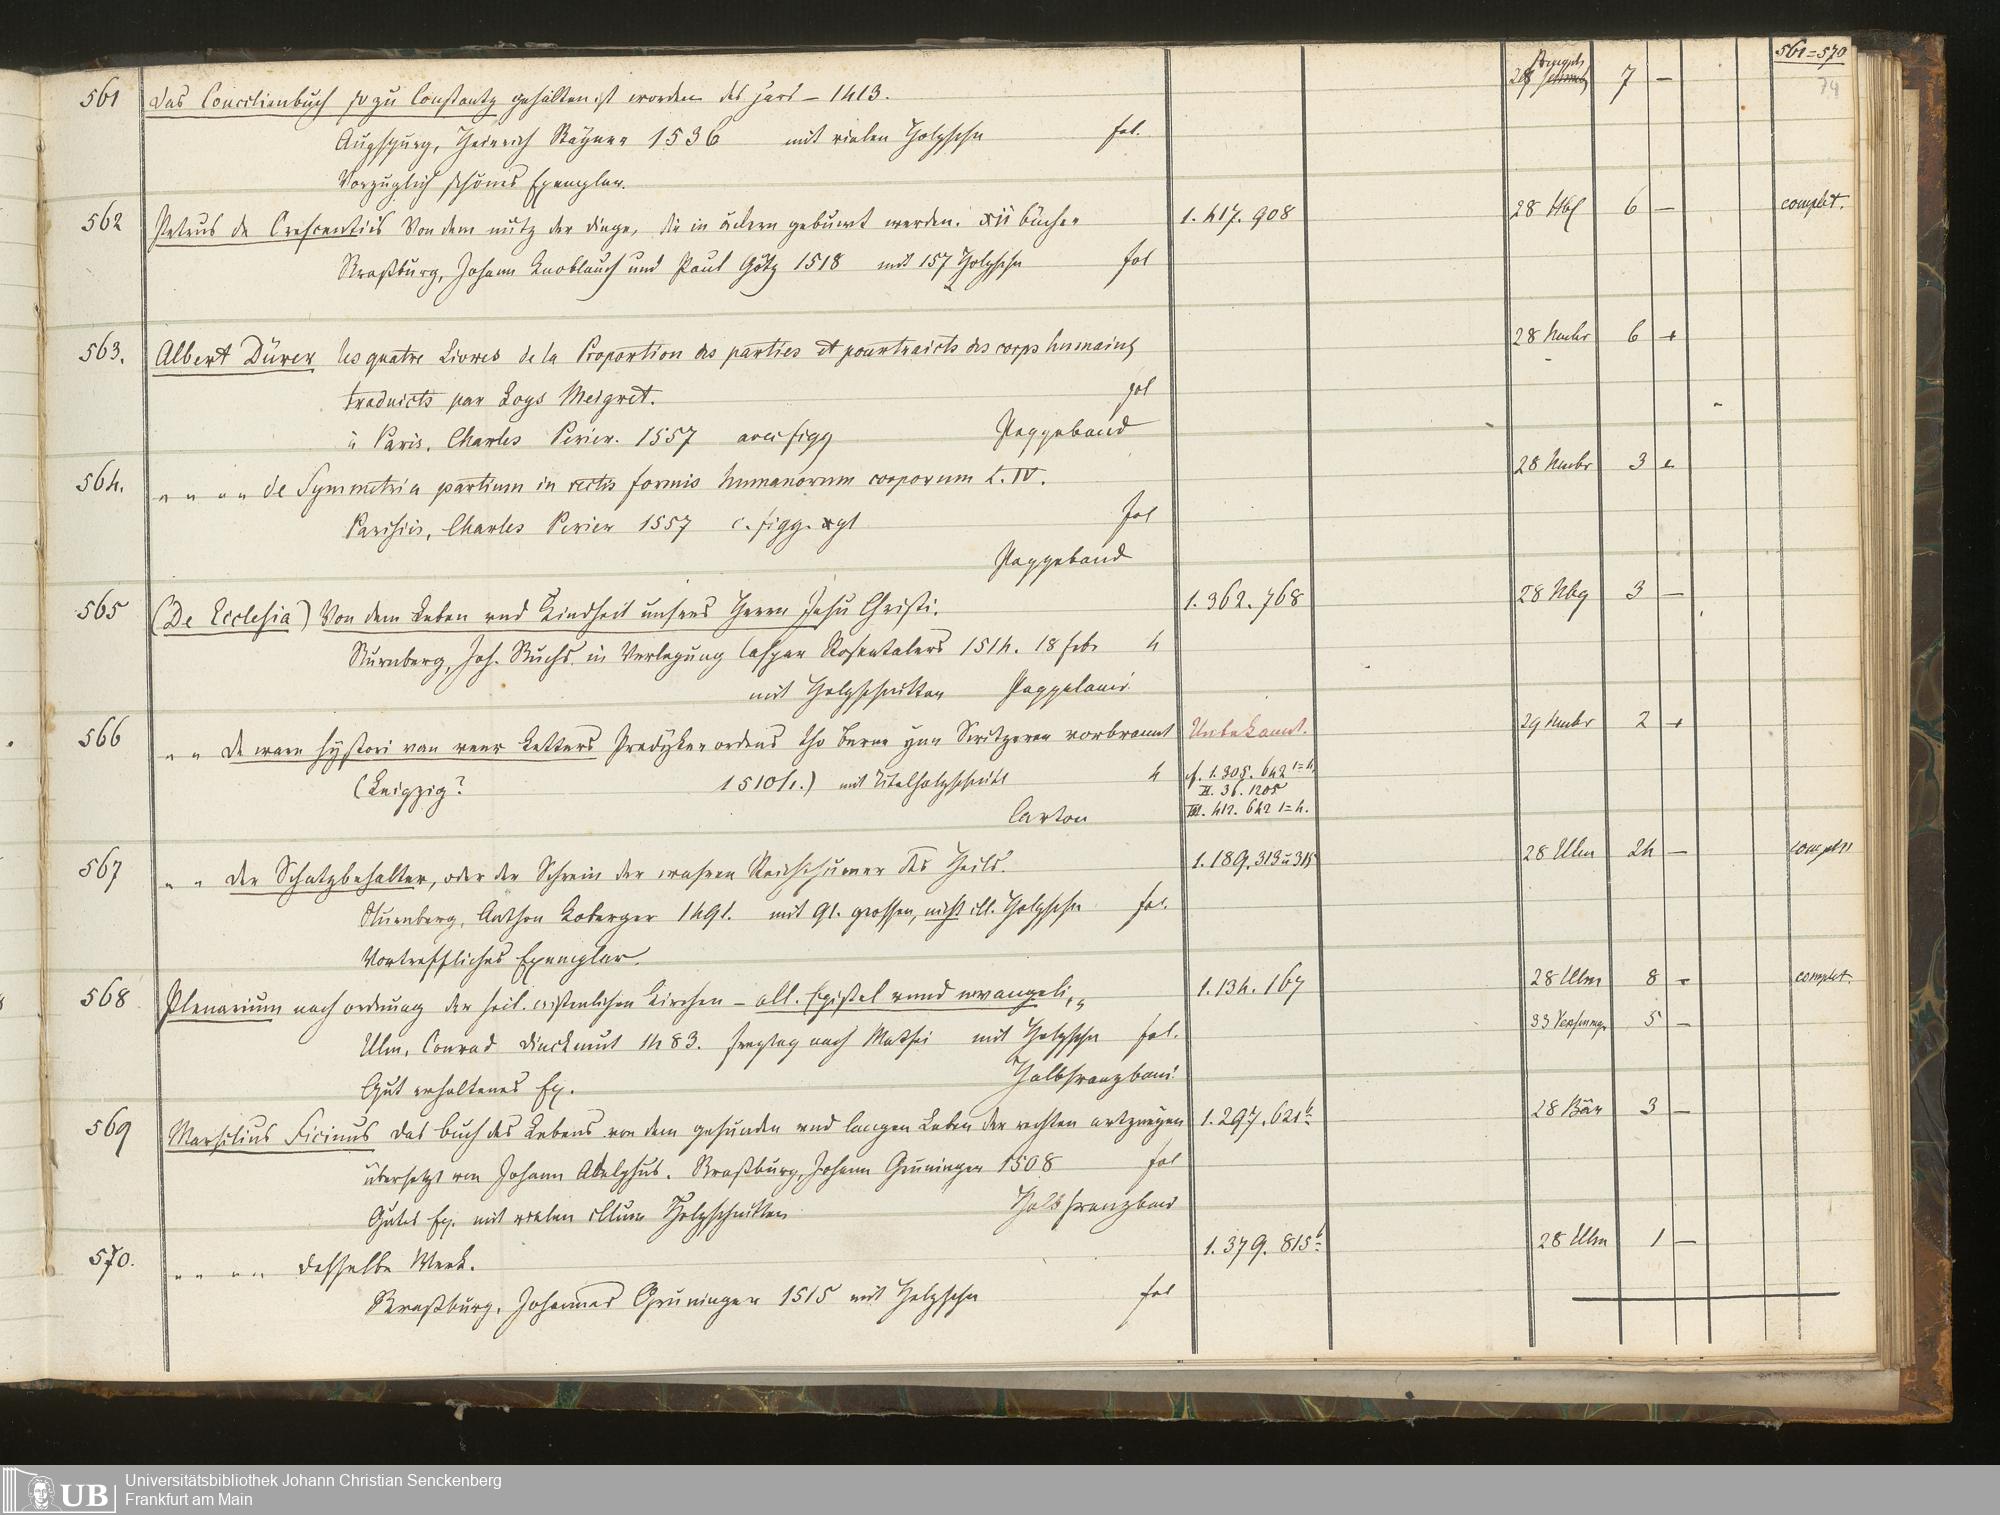 561=570
74
561 Das Concilienbuch so zu Constantz gehalten ist worden des jars – 1413. 28 7 –
Augspurg, Heinrich Stayner 1536 mit vielen Holzschn fol.
Vorzüglich schönes Exemplar.
562 Petrus de Crescentiis Von dem nutz der dinge, die in äckern gebuwt werden. xii bücher 1. 417. 908 28 6 – complet.
Straßburg, Johann Knoblauch und Paul Götz 1518 mit 157 Holzschn fol
563. Albert Dürer les quatre Livres de la Proportion des parties et pourtraicts des corps humains 28 6
traduicts par Loys Meigret. fol
à Paris, Charles Perier. 1557 avec figg Pappeband
564. „ „ „ „ de Symmetria partium in rectis formis humanorum corporum L. IV. 28 3
Parisiis, Charles Perier 1557 c. figg. xyl fol
Pappeband
565 (De Ecclesia) Von dem Leben und Kindheit unsers Herrn Jesu Christi. 1. 362. 768 28 Nbg 3 –
Nurnberg, Joh. Stuchs in Verlegung Caspar Rosentalers 1514. 18 febr 4
mit Holzschnitten Pappeband
566 „ „ De ware hystori van veer ketters Predyker ordens tho Berne yn Switzeren vorbrannt Unbekannt. 29 2
(Leipzig? 1510/1.) mit Titelholzschnitt 4 cf. 1. 305. 642 1=4.
II. 36. 1205
Carton III. 412. 642 1=4.
567 „ „ der Schatzbehalter, oder der Schrein der wahren Reichthümer des Heils. 1. 189. 313 u 314 28 Ulm 24 – complet
Nurnberg, Anthon Koberger 1491. mit 91. grossen, nicht ill. Holzschn fol.
Vortreffliches Exemplar.
568 Plenarium nach ordnung der heil. cristenlichen Kirchen – all. Epistel vnnd ewangeli „ 1. 134. 167 28 Ulm 8 – complet.
Ulm, Conrad Dinckmut 1483. freytag nach Mathei mit Holzschn fol. 33 5 –
Gut erhaltenes Ex. Halbfranzband
569 Marsilius Ficinus das buch des Lebens von dem gesunden und langen Leben der rechten artzneyen 1. 297. 621b 28 Bär 3 –
übersetzt von Johann Adelphus. Straßburg, Johann Gruninger 1508 fol
Gutes Ex. mit vielen illum Holzschnitten Halbfranzband
570. „ „ „ „ dasselbe Werk. 1. 379. 815b 28 Ulm 1 –
Straßburg, Johannes Gruninger 1515 mit Holzschn fol
UB Universitätsbibliothek Johann Christian Senckenberg
Frankfurt am Main